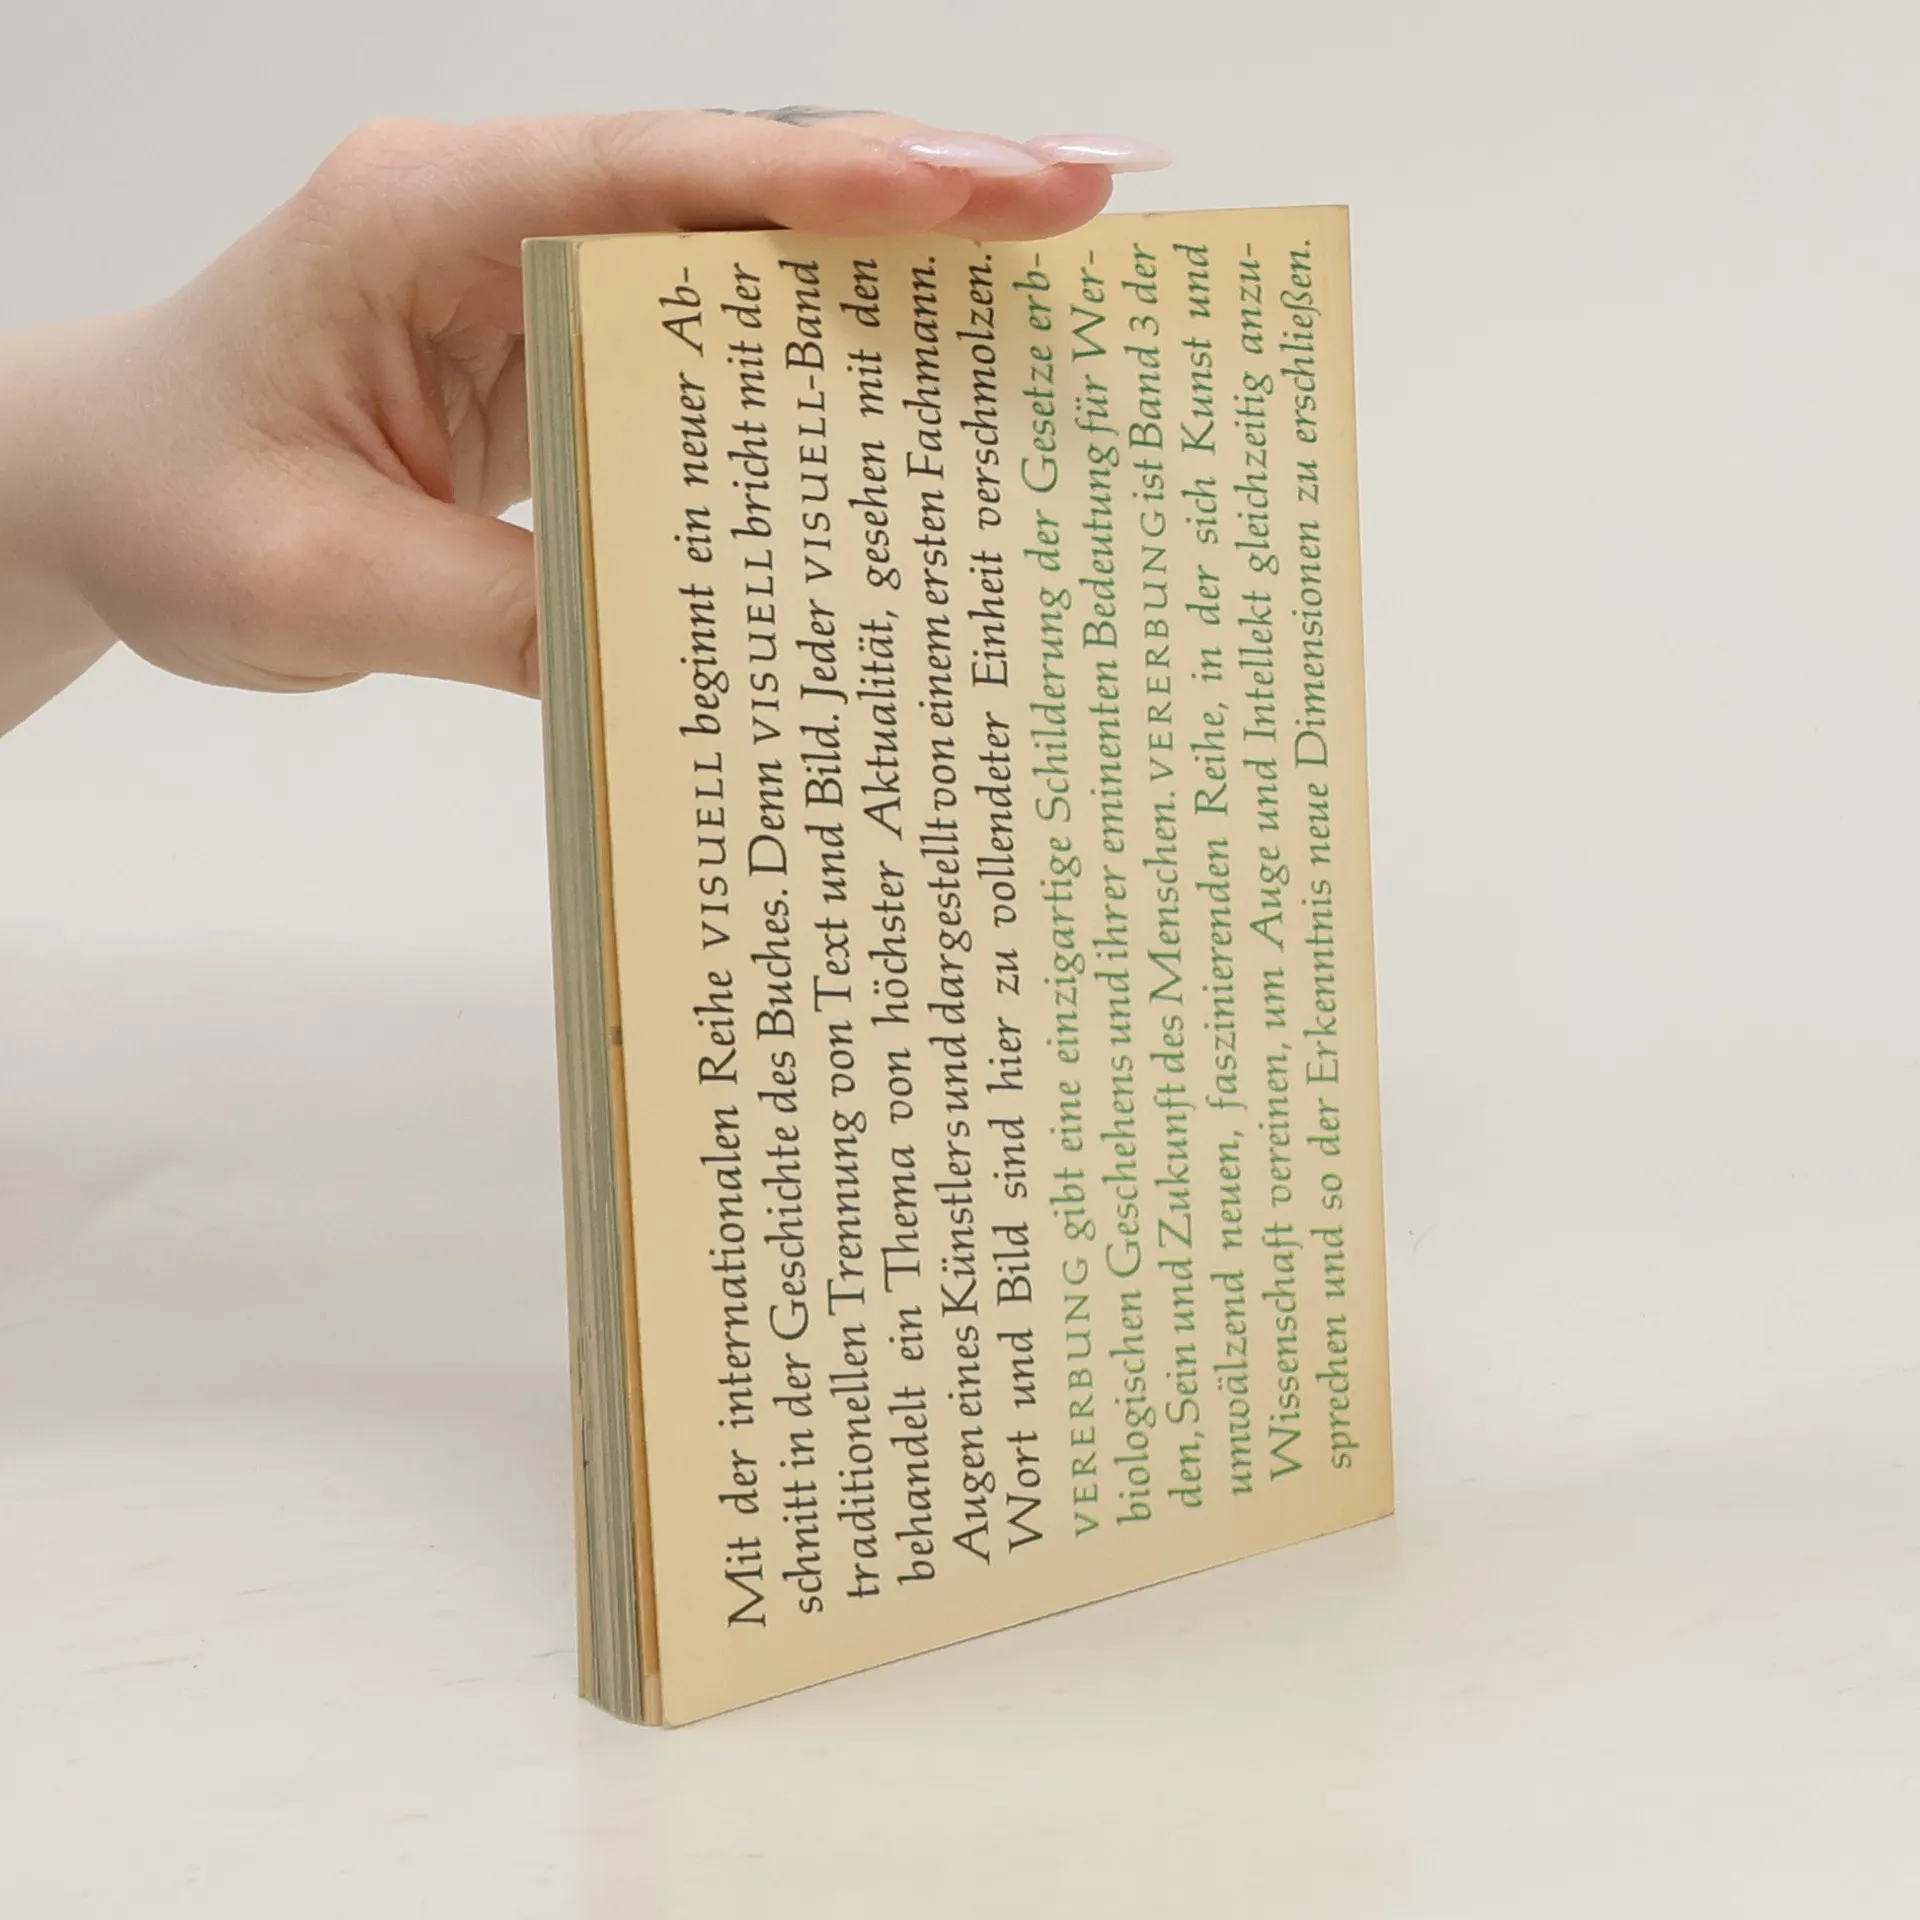 Mit der internationalen Reihe VISUELL beginnt ein neuer Ab-
schnitt in der Geschichte des Buches. Denn VISUELL bricht mit der
traditionellen Trennung von Text und Bild. Jeder VISUELL-Band
behandelt ein Thema von höchster Aktualität, gesehen mit den
Augen eines Künstlers und dargestellt von einem ersten Fachmann.
Wort und Bild sind hier zu vollendeter Einheit verschmolzen.
VERERBUNG gibt eine einzigartige Schilderung der Gesetze erb-
biologischen Geschehens und ihrer eminenten Bedeutung für Wer-
den, Sein und Zukunft des Menschen. VERERBUNG ist Band 3 der
umwälzend neuen, faszinierenden Reihe, in der sich Kunst und
Wissenschaft vereinen, um Auge und Intellekt gleichzeitig anzu-
sprechen und so der Erkenntnis neue Dimensionen zu erschließen.